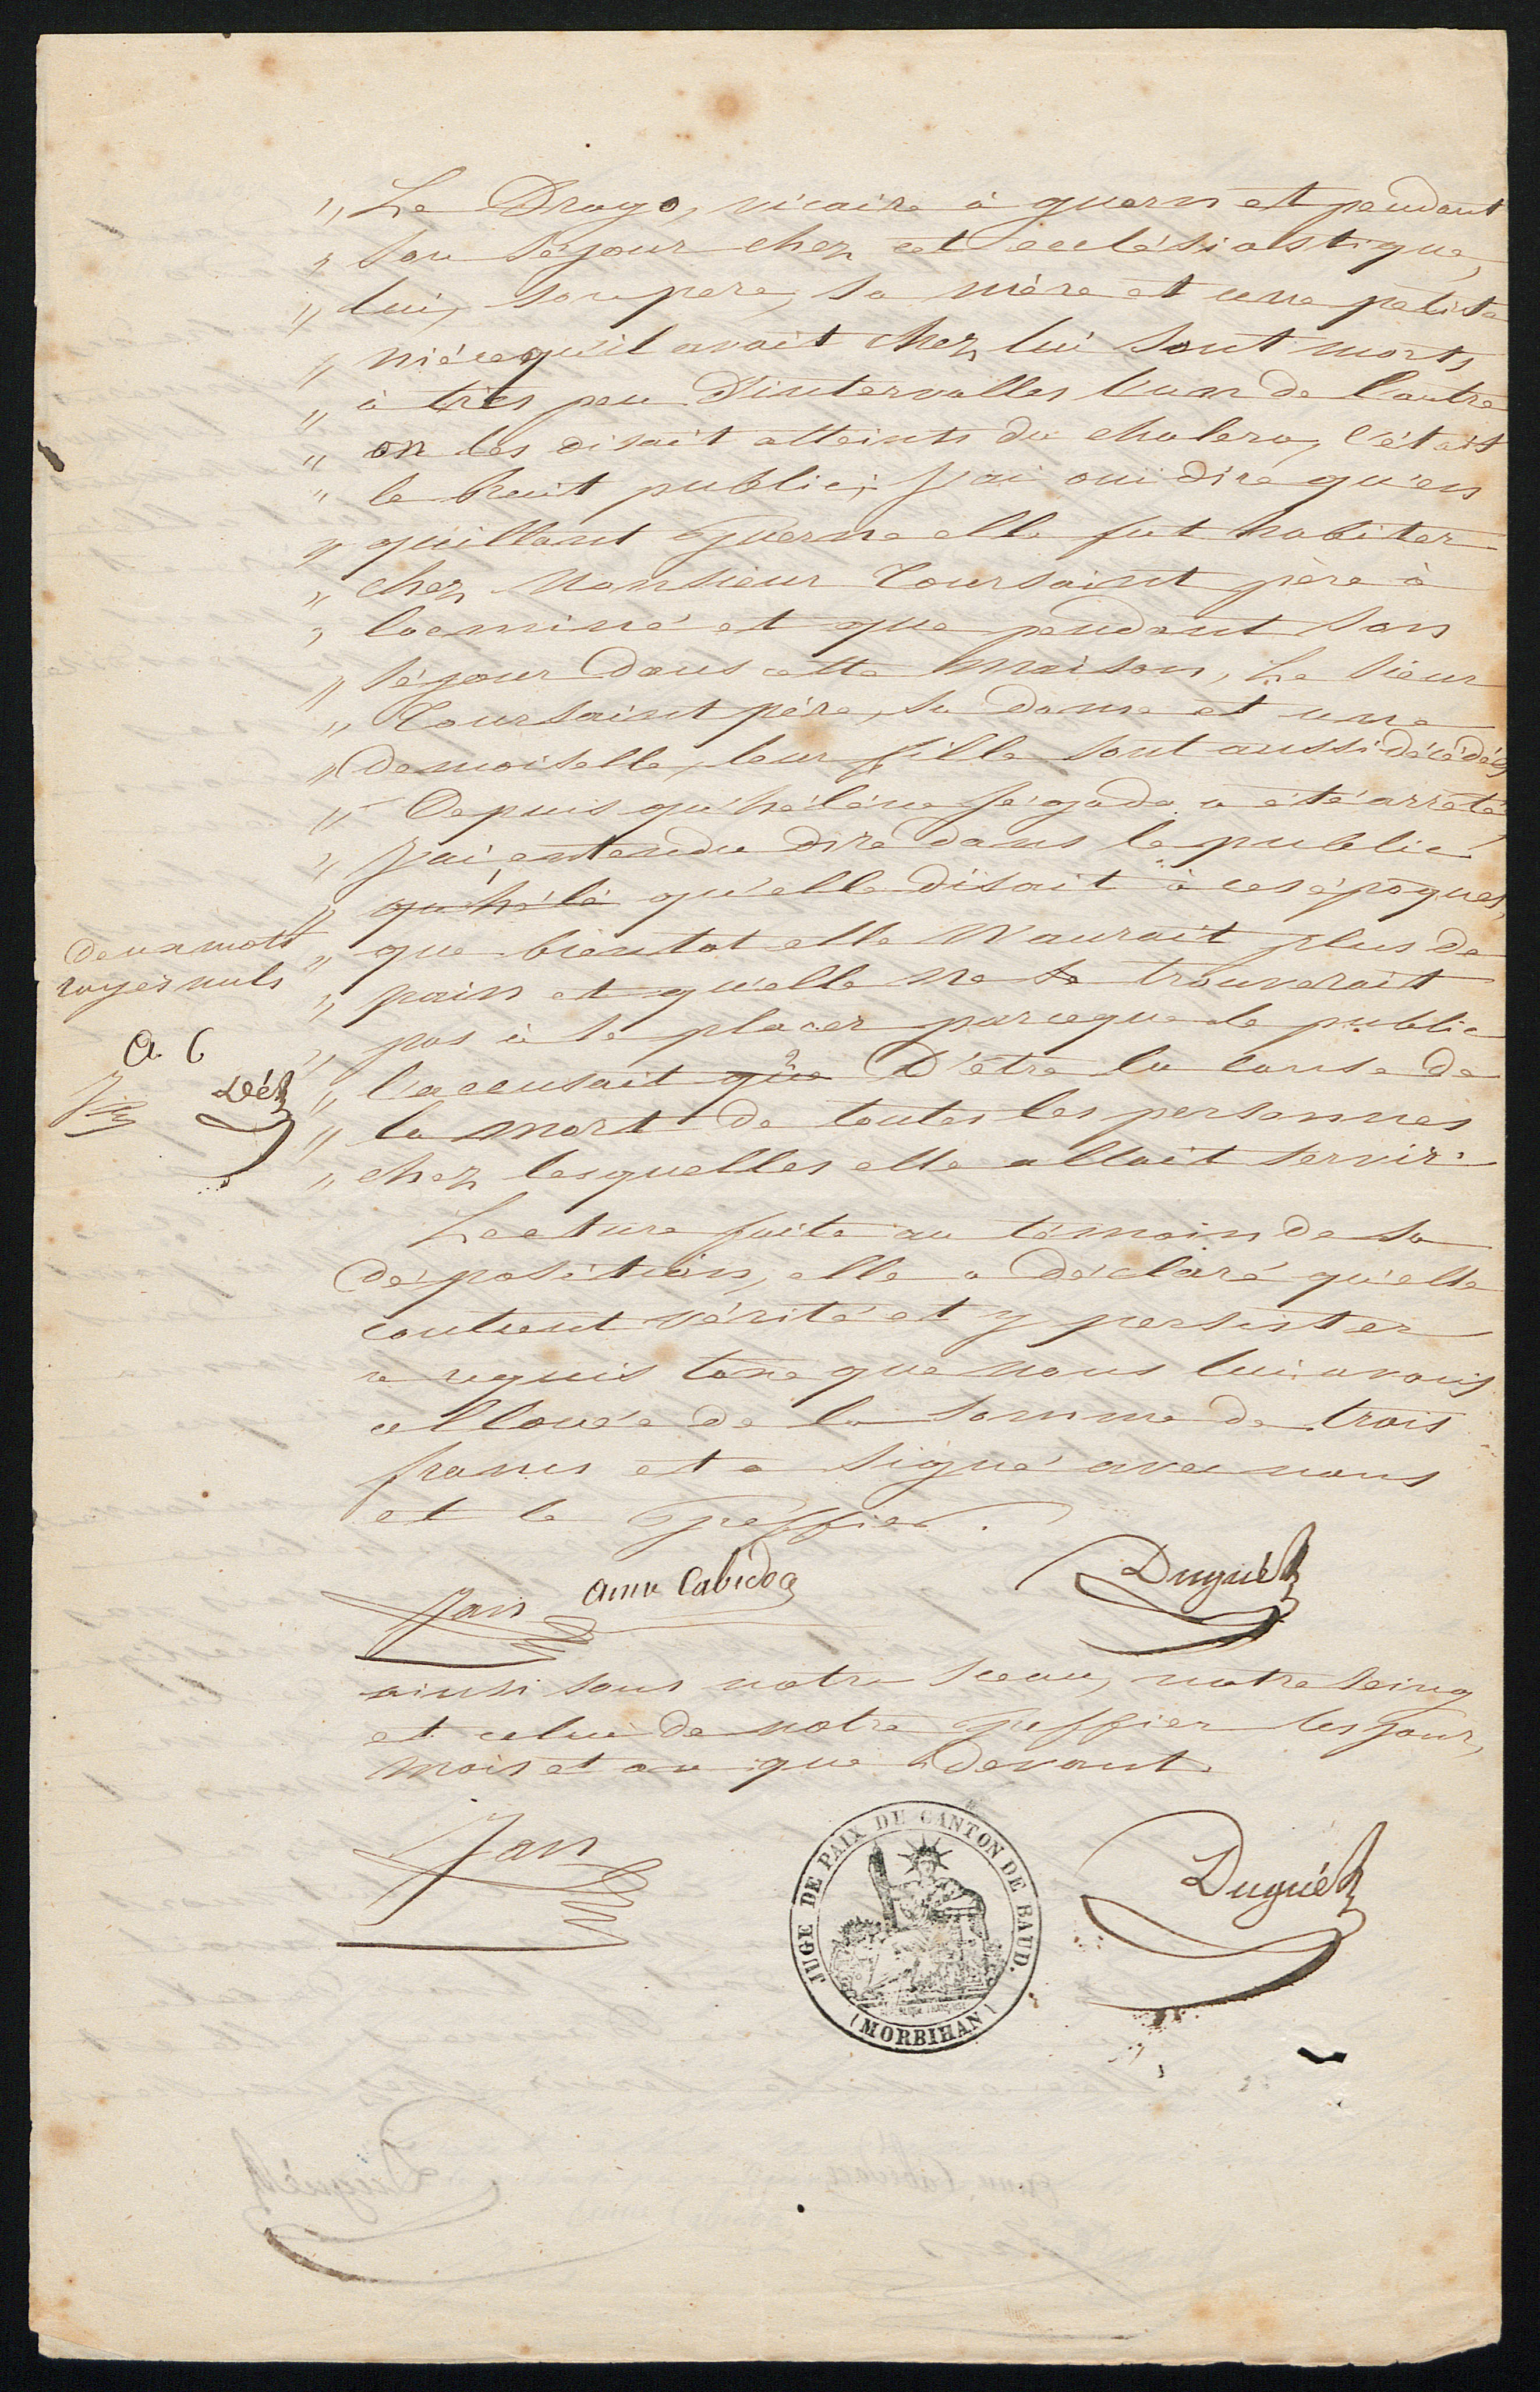 " Le Drogo, vicaire à guern et pendant
" son séjour chez cet ecclésiastique,
" lui, son pere, sa mère et une petite
" nièce qu'il avait chez lui sont morts
" à très peu d'intervalles l'un de l'autre
" on les disait atteints du cholera, c'était
" le bruit public; j'ai oui dire qu'en
" quittant Guerne elle fut habiter
" chez Monsieur Toursaint père à
" locminé et que pendant son
" séjour dans cette maison, Le sieur
" Toursaint père, sa dame et une
" demoiselle, leur fille sont aussi décédés
" Depuis qu'hélène Jégado a été arrêté,
" j'ai entendu dire dans le public
" qu'hélè qu'elle disait à ces époques,
" que bientot elle n'aurait plus de
" pain et qu'elle ne se trouverait
" pas à se placer parceque le public
" l'accusait que D'être la cause de
" la mort de toutes les personnes
" chez lesquelles elle allait servir.
deux mots
rayés nuls
A. C
Lecture faite au témoin de sa
déposition, elle a déclaré qu'elle
contient vérité et y persister
a requis taxe que nous lui avons
allouée de la somme de trois
francs et a signé avec nous
et le Greffier.
Jan anne Cabedoq Dugué
ainsi sous notre sceau, notre seing
et celui de notre Greffier les jour,
mois et an que devant.
Jan Dugué
JUGE DE PAIX DU CANTON DE BAUD.
(MORBIHAN)